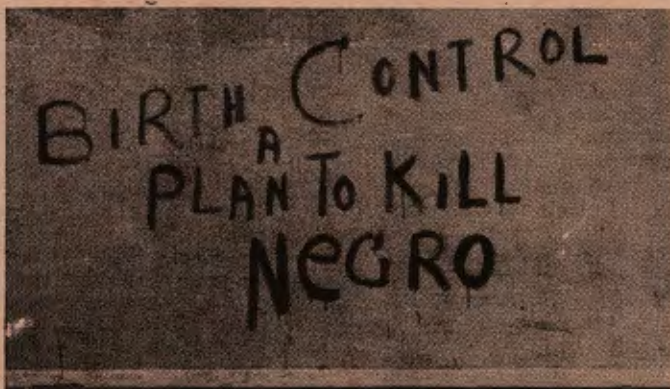 BIRTH CONTROL
A
PLAN TO KILL
NEGRO